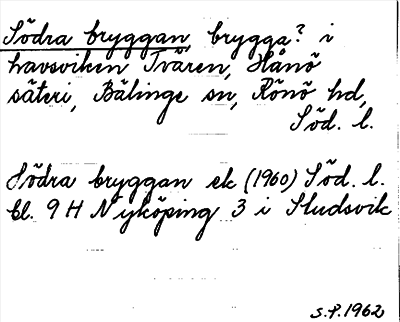 Södra bryggan, brygga? i
havsviken Tvären, Hånö
säteri, Bälinge sn, Rönö hd,
Söd. l.
Södra bryggan ek (1960) Söd. l.
bl. 9 H Nyköping 3 i Studsvik
S.P. 1962